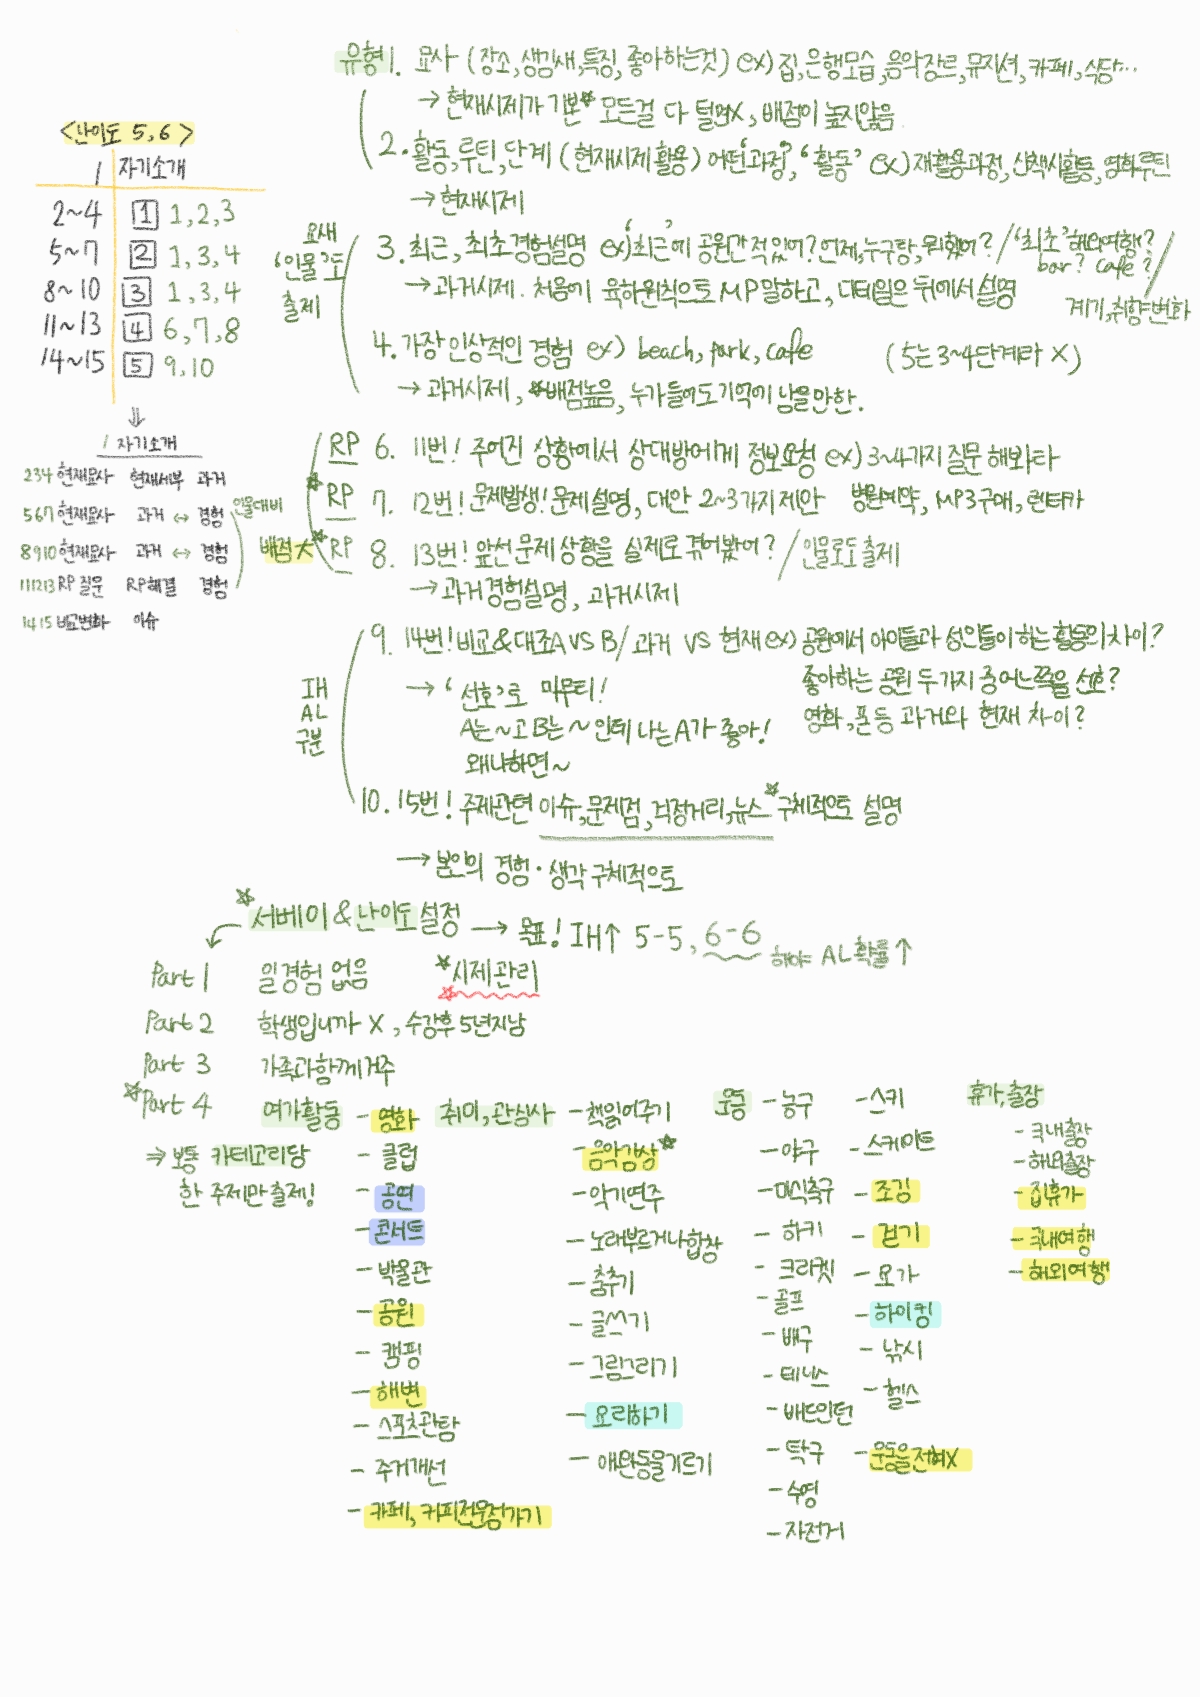 유형1. 묘사 (장소, 생김새, 특징, 좋아하는것) ex) 집, 은행모습, 음악장르, 뮤지션, 카페, 식당...
→ 현재시제가 기본☆ 모든걸 다 털면X, 배점이 높지않음
2. 활동, 루틴, 단계 (현재시제 활용) 어떤 '과정', '활동' ex) 재활용과정, 산책시활동, 영화루틴
→ 현재시제
요새 '인물'도 출제
3. 최근, 최초 경험설명 ex) '최근'에 공원간적있어? 언제, 누구랑, 뭐했어? / '최초' 해외여행? bar? cafe? /
→ 과거시제. 처음에 육하원칙으로 MP 말하고, 디테일은 뒤에서 설명
계기, 취향변화
4. 가장 인상적인 경험 ex) beach, park, cafe (5는 3~4단계라 X)
→ 과거시제, ☆배점높음, 누가들어도 기억에 남을만한.
<난이도 5, 6>
1 자기소개
2~4 1 1, 2, 3
5~7 2 1, 3, 4
8~10 3 1, 3, 4
11~13 4 6, 7, 8
14~15 5 9, 10
⇓
1 자기소개
234 현재묘사 현재세부 과거
567 현재묘사 과거 ↔ 경험
8910 현재묘사 과거 ↔ 경험
111213 RP 질문 RP 해결 경험
1415 비교변화 이슈
인물대비
배점 大
☆ RP 6. 11번! 주어진 상황에서 상대방에게 정보요청 ex) 3~4가지 질문 해봐라
RP 7. 12번! 문제발생! 문제 설명, 대안 2~3가지 제안 병원예약, MP3 구매, 렌터카
☆ RP 8. 13번! 앞선 문제 상황을 실제로 겪어봤어? / 인물로도 출제
→ 과거경험설명, 과거시제
IH AL 구분
9. 14번! 비교&대조 A VS B / 과거 VS 현재 ex) 공원에서 아이들과 성인들이 하는 활동의 차이?
→ '선호'로 마무리! 좋아하는 공원 두가지 중 어느쪽을 선호?
A는 ~고 B는 ~ 인데 나는 A가 좋아! 영화, 폰 등 과거와 현재 차이?
왜냐하면~
10. 15번! 주제관련 이슈, 문제점, 걱정거리, 뉴스☆ 구체적으로 설명
→ 본인의 경험·생각 구체적으로
☆ 서베이 & 난이도 설정 → 목표! IH↑ 5-5, 6-6 해야 AL 확률↑
Part 1 일경험 없음 ☆시제관리☆
Part 2 학생입니까 X, 수강후 5년지남
Part 3 가족과 함께 거주
☆Part 4
⇒ 보통 카테고리당
한 주제만 출제됨
여가활동
- 영화
- 클럽
- 공연
- 콘서트
- 박물관
- 공원
- 캠핑
- 해변
- 스포츠관람
- 주거개선
- 카페, 커피전문점가기
취미, 관심사
- 책읽어주기
- 음악감상☆
- 악기연주
- 노래부르거나 합창
- 춤추기
- 글쓰기
- 그림그리기
- 요리하기
- 애완동물기르기
운동
- 농구
- 야구
- 미식축구
- 하키
- 크리켓
- 골프
- 배구
- 테니스
- 배드민턴
- 탁구
- 수영
- 자전거
- 스키
- 스케이트
- 조깅
- 걷기
- 요가
- 하이킹
- 낚시
- 헬스
- 운동을 전혀X
휴가, 출장
- 국내출장
- 해외출장
- 집휴가
- 국내여행
- 해외여행